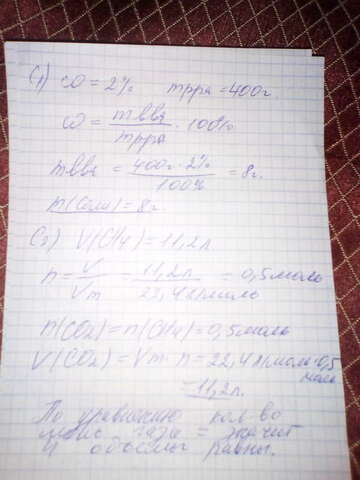 С1) ω = 2% mр-ра = 400г
ω = mвва / mр-ра · 100%
mвва = 400г · 2% / 100% = 8г.
m(соли) = 8г.
С2) V(CH4) = 11,2л
n = V / Vm = 11,2л / 22,4л/моль = 0,5моль
n(CO2) = n(CH4) = 0,5моль
V(CO2) = Vm · n = 22,4л/моль · 0,5
моль
= 11,2л.
По уравнению кол-во
газы = значит
и объемы равны.